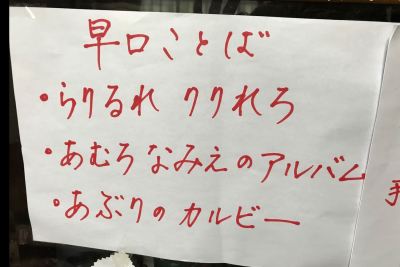 早口ことば
・らりるれ りりれろ
・あむろなみえのアルバム
・あぶりのカルビー